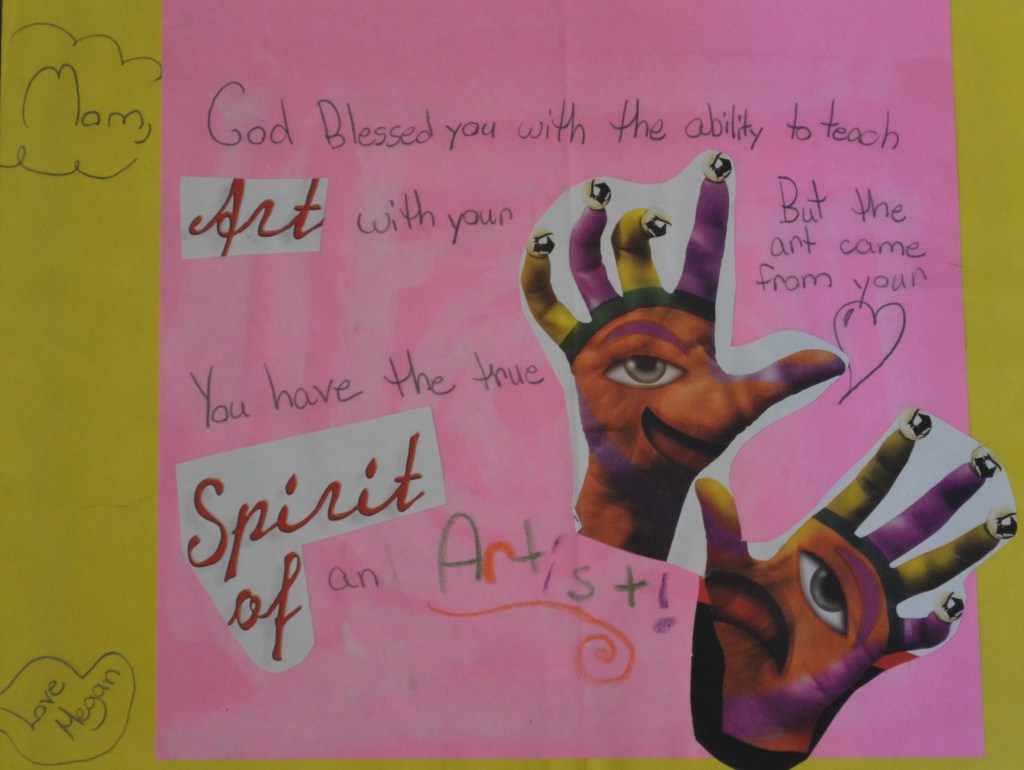 Mam,
God Blessed you with the ability to teach
Art with your
But the
art came
from your
You have the true
Spirit
of an Artist!
Love
Megan